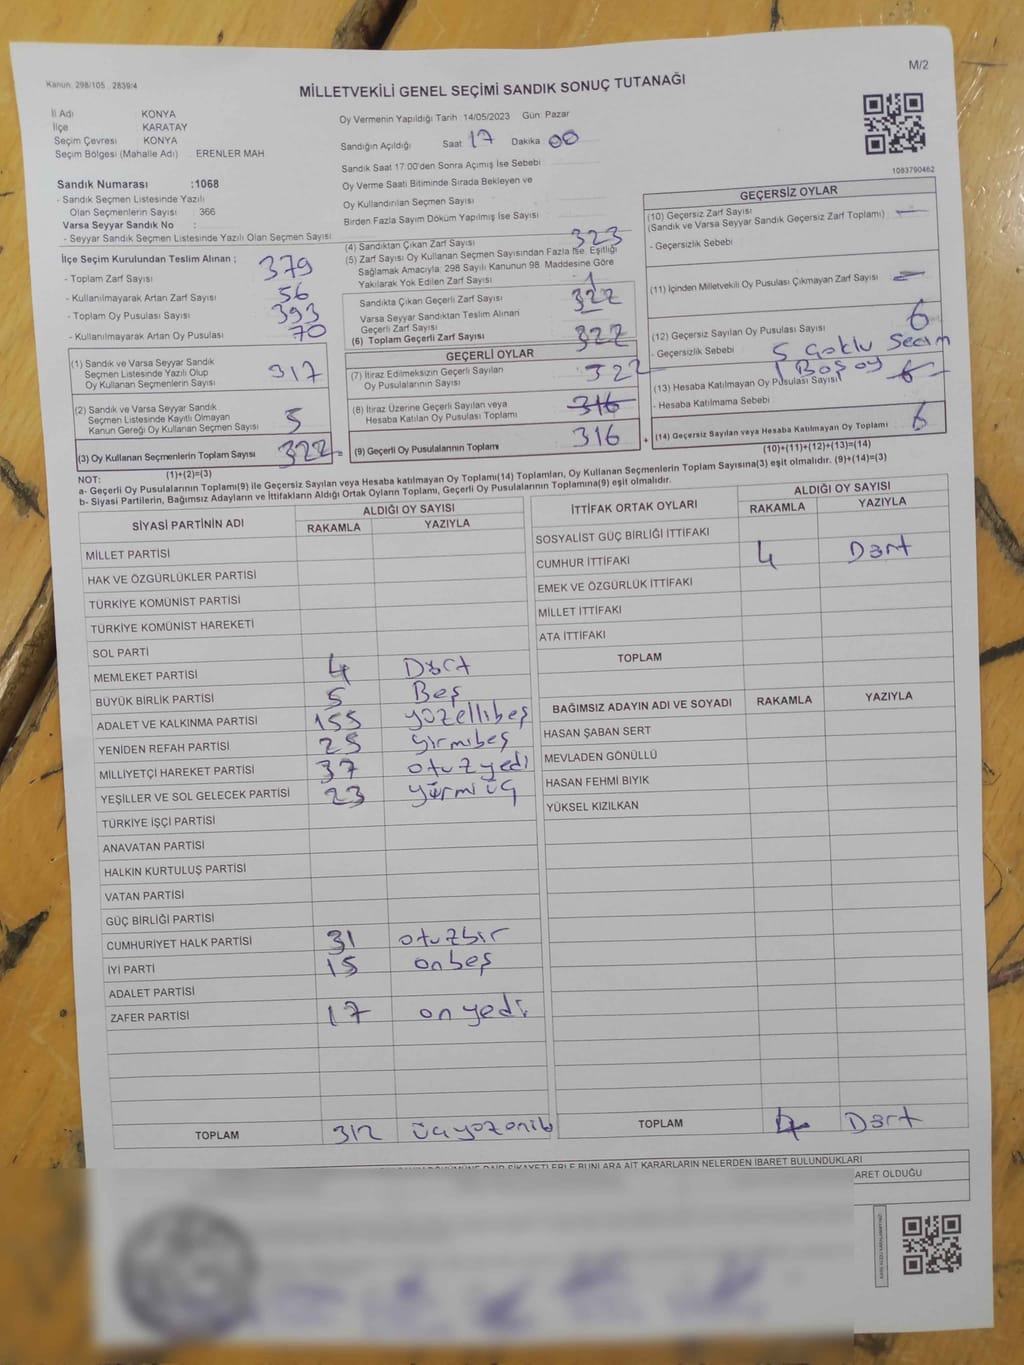 Kanun: 298/105 , 2839/4
M/2
MİLLETVEKİLİ GENEL SEÇİMİ SANDIK SONUÇ TUTANAĞI
İl Adı KONYA
İlçe KARATAY
Seçim Çevresi KONYA
Seçim Bölgesi (Mahalle Adı) : ERENLER MAH
Sandık Numarası :1068
- Sandık Seçmen Listesinde Yazılı
Olan Seçmenlerin Sayısı : 366
Varsa Seyyar Sandık No :
- Seyyar Sandık Seçmen Listesinde Yazılı Olan Seçmen Sayısı
Oy Vermenin Yapıldığı Tarih : 14/05/2023 Gün: Pazar
Sandığın Açıldığı Saat 17 Dakika 00
Sandık Saat 17:00'den Sonra Açımış İse Sebebi
Oy Verme Saati Bitiminde Sırada Bekleyen ve
Oy Kullandırılan Seçmen Sayısı
Birden Fazla Sayım Döküm Yapılmış İse Sayısı
1083790462
İlçe Seçim Kurulundan Teslim Alınan ;
- Toplam Zarf Sayısı 379
- Kullanılmayarak Artan Zarf Sayısı 56
- Toplam Oy Pusulası Sayısı 393
- Kullanılmayarak Artan Oy Pusulası 70
(1) Sandık ve Varsa Seyyar Sandık
Seçmen Listesinde Yazılı Olup
Oy Kullanan Seçmenlerin Sayısı 317
(2) Sandık ve Varsa Seyyar Sandık
Seçmen Listesinde Kayıtlı Olmayan
Kanun Gereği Oy Kullanan Seçmen Sayısı 5
(3) Oy Kullanan Seçmenlerin Toplam Sayısı 322
(1)+(2)=(3)
(4) Sandıktan Çıkan Zarf Sayısı 323
(5) Zarf Sayısı Oy Kullanan Seçmen Sayısından Fazla İse, Eşitliği
Sağlamak Amacıyla; 298 Sayılı Kanunun 98. Maddesine Göre
Yakılarak Yok Edilen Zarf Sayısı 1
Sandıkta Çıkan Geçerli Zarf Sayısı 322
Varsa Seyyar Sandıktan Teslim Alınan
Geçerli Zarf Sayısı
(6) Toplam Geçerli Zarf Sayısı 322
GEÇERLİ OYLAR
(7) İtiraz Edilmeksizin Geçerli Sayılan
Oy Pusulalarının Sayısı 322
(8) İtiraz Üzerine Geçerli Sayılan veya
Hesaba Katılan Oy Pusulası Toplamı 316
(9) Geçerli Oy Pusulalarının Toplamı 316
GEÇERSİZ OYLAR
(10) Geçersiz Zarf Sayısı —
(Sandık ve Varsa Seyyar Sandık Geçersiz Zarf Toplamı)
- Geçersizlik Sebebi
(11) İçinden Milletvekili Oy Pusulası Çıkmayan Zarf Sayısı
(12) Geçersiz Sayılan Oy Pusulası Sayısı 6
- Geçersizlik Sebebi 5 Çoklu Secim
1 Boş oy
(13) Hesaba Katılmayan Oy Pusulası Sayısı 6
- Hesaba Katılmama Sebebi
(14) Geçersiz Sayılan veya Hesaba Katılmayan Oy Toplamı 6
(10)+(11)+(12)+(13)=(14)
NOT:
a- Geçerli Oy Pusulalarının Toplamı(9) ile Geçersiz Sayılan veya Hesaba katılmayan Oy Toplamı(14) Toplamları, Oy Kullanan Seçmenlerin Toplam Sayısına(3) eşit olmalıdır. (9)+(14)=(3)
b- Siyasi Partilerin, Bağımsız Adayların ve İttifakların Aldığı Ortak Oyların Toplamı, Geçerli Oy Pusulalarının Toplamına(9) eşit olmalıdır.
SİYASİ PARTİNİN ADI
ALDIĞI OY SAYISI
RAKAMLA YAZIYLA
MİLLET PARTİSİ
HAK VE ÖZGÜRLÜKLER PARTİSİ
TÜRKİYE KOMÜNİST PARTİSİ
TÜRKİYE KOMÜNİST HAREKETİ
SOL PARTİ
MEMLEKET PARTİSİ 4 Dört
BÜYÜK BİRLİK PARTİSİ 5 Beş
ADALET VE KALKINMA PARTİSİ 155 yüzellibeş
YENİDEN REFAH PARTİSİ 25 yirmibeş
MİLLİYETÇİ HAREKET PARTİSİ 37 otuzyedi
YEŞİLLER VE SOL GELECEK PARTİSİ 23 yirmi üç
TÜRKİYE İŞÇİ PARTİSİ
ANAVATAN PARTİSİ
HALKIN KURTULUŞ PARTİSİ
VATAN PARTİSİ
GÜÇ BİRLİĞİ PARTİSİ
CUMHURİYET HALK PARTİSİ 31 otuzbir
İYİ PARTİ 15 onbeş
ADALET PARTİSİ
ZAFER PARTİSİ 17 onyedi
TOPLAM 312
İTTİFAK ORTAK OYLARI
ALDIĞI OY SAYISI
RAKAMLA YAZIYLA
SOSYALİST GÜÇ BİRLİĞİ İTTİFAKI
CUMHUR İTTİFAKI 4 Dört
EMEK VE ÖZGÜRLÜK İTTİFAKI
MİLLET İTTİFAKI
ATA İTTİFAKI
TOPLAM
BAĞIMSIZ ADAYIN ADI VE SOYADI RAKAMLA YAZIYLA
HASAN ŞABAN SERT
MEVLADEN GÖNÜLLÜ
HASAN FEHMİ BIYIK
YÜKSEL KIZILKAN
TOPLAM 4 Dört
ARET OLDUĞU